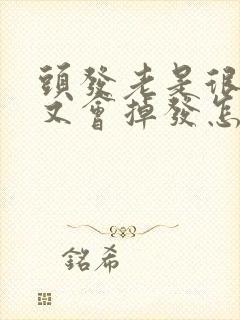 頭發老是很
又會掉發怎
銘希